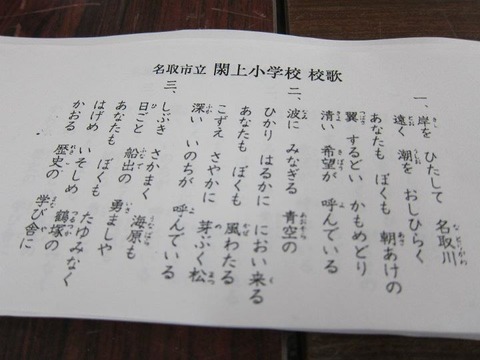 名取市立 閖上小学校 校歌
一、岸を ひたして 名取川
遠く 潮を おしひらく
あなたも ぼくも 朝あけの
翼 するどい かもめどり
清い 希望が 呼んでいる
二、波に みなぎる 青空の
ひかり はるかに におい来る
あなたも ぼくも 風わたる
こずえ さやかに 芽ぶく松
深い いのちが 呼んでいる
三、しぶき さかまく 海原も
日ごと 船出の 勇ましや
あなたも ぼくも たゆみなく
はげめ いそしめ 鶴塚の
かおる 歴史の 学び舎に